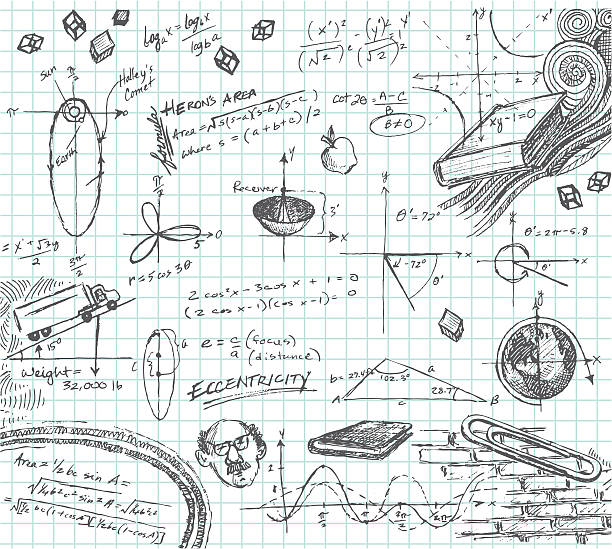 Log_a x = log_b x / log_b a
(x')²/(√2)² - (y')²/(√2)² = 1
sun
π/2
Halley's Comet
π
0
Earth
3π/2
formula
HERON'S AREA
Area = √s(s-a)(s-b)(s-c)
where s = (a+b+c)/2
cot 2θ = A-C/B
B≠0
y
x'
y'
2
x
xy-1=0
π/2
5
0
r = 5 cos 3θ
y
Receiver
3'
x
y
θ' = 72°
-72°
θ'
x
y
θ' = 2π-5.8
θ'
x
= x' + √3y'/2
2 cos²x - 3cos x + 1 = 0
(2 cos x -1)(cos x -1) = 0
15°
weight = 32,000 lb
a
c
e = c (focus)
a (distance)
ECCENTRICITY
b = 27.4
102.3°
a
28.7°
A
c
B
y
x
Area = 1/2 bc sin A =
y
2
π/2
π
3π/2
2π
x